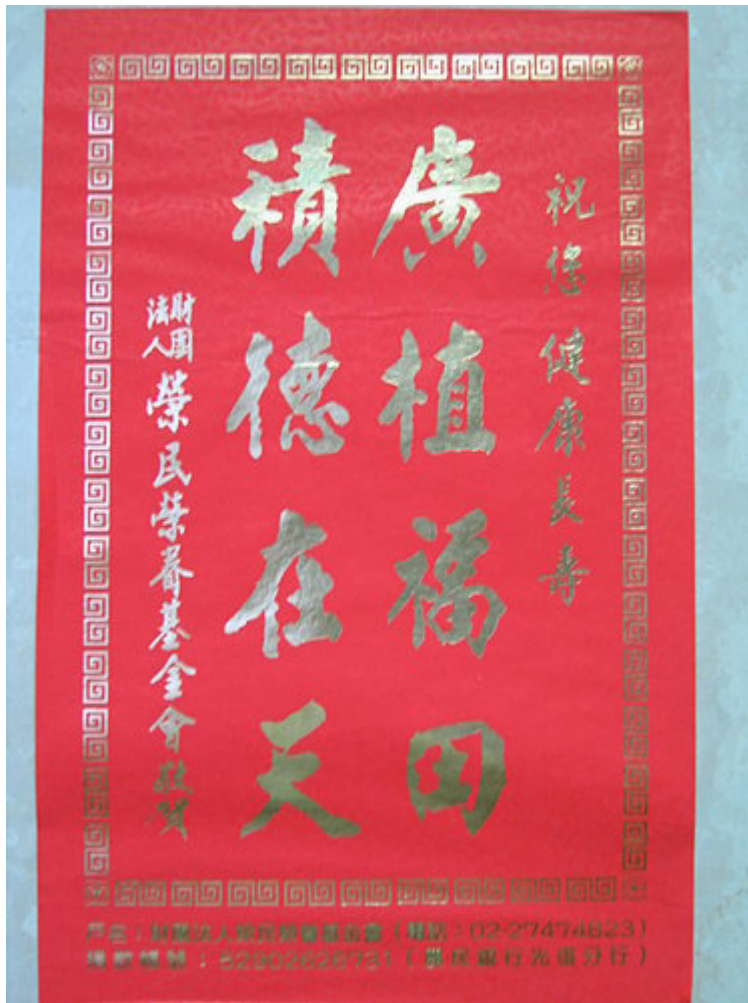 祝您健康長壽
廣植福田
積德在天
財團法人
榮民榮眷基金會敬賀
戶名：財團法人榮民榮眷基金會（電話：02-27474823）
捐款帳號：52902626731（華僑銀行光復分行）